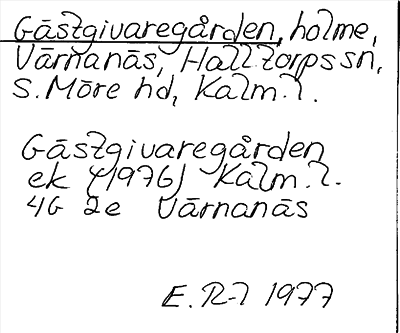 Gästgivaregården, holme,
Värnanäs, Halltorps sn,
S. Möre hd, Kalm. l.
Gästgivaregården
ek (1976) Kalm. l.
4G 2e Värnanäs
E. R-l 1977